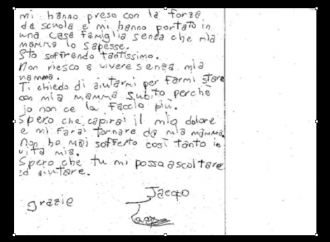 mi hanno preso con la forza
da scuola e mi hanno portato in
una casa famiglia senza che mia
mamma lo sapesse.
Sto soffrendo tantissimo.
Non riesco a vivere senza mia
mamma.
Ti chiedo di aiutarmi per farmi stare
con mia mamma subito perche
io non ce la faccio più.
Spero che capirai il mio dolore
e mi farai tornare da mia mamma
Non ho mai sofferto così tanto in
vita mia.
Spero che tu mi possa ascoltare
ed aiutare.
Jacopo
grazie